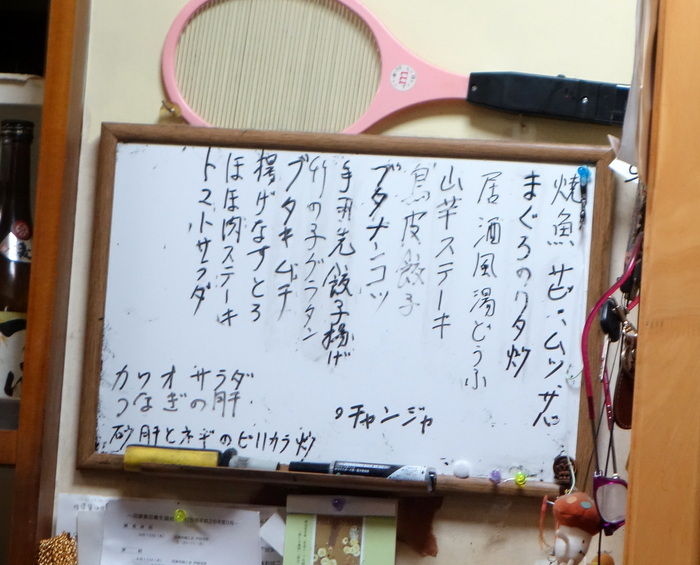 焼魚 サバ・ムツ・サバ
まぐろのワタ炒
居酒風湯どうふ
山芋ステーキ
鳥皮餃子
ブタナンコツ
手羽先餃子揚げ
竹の子グラタン
ブタキムチ
揚げなすとろ
ほほ肉ステーキ
トマトサラダ
カツオサラダ
うなぎの肝
砂肝とネギのピリカラ炒
。チャンジャ